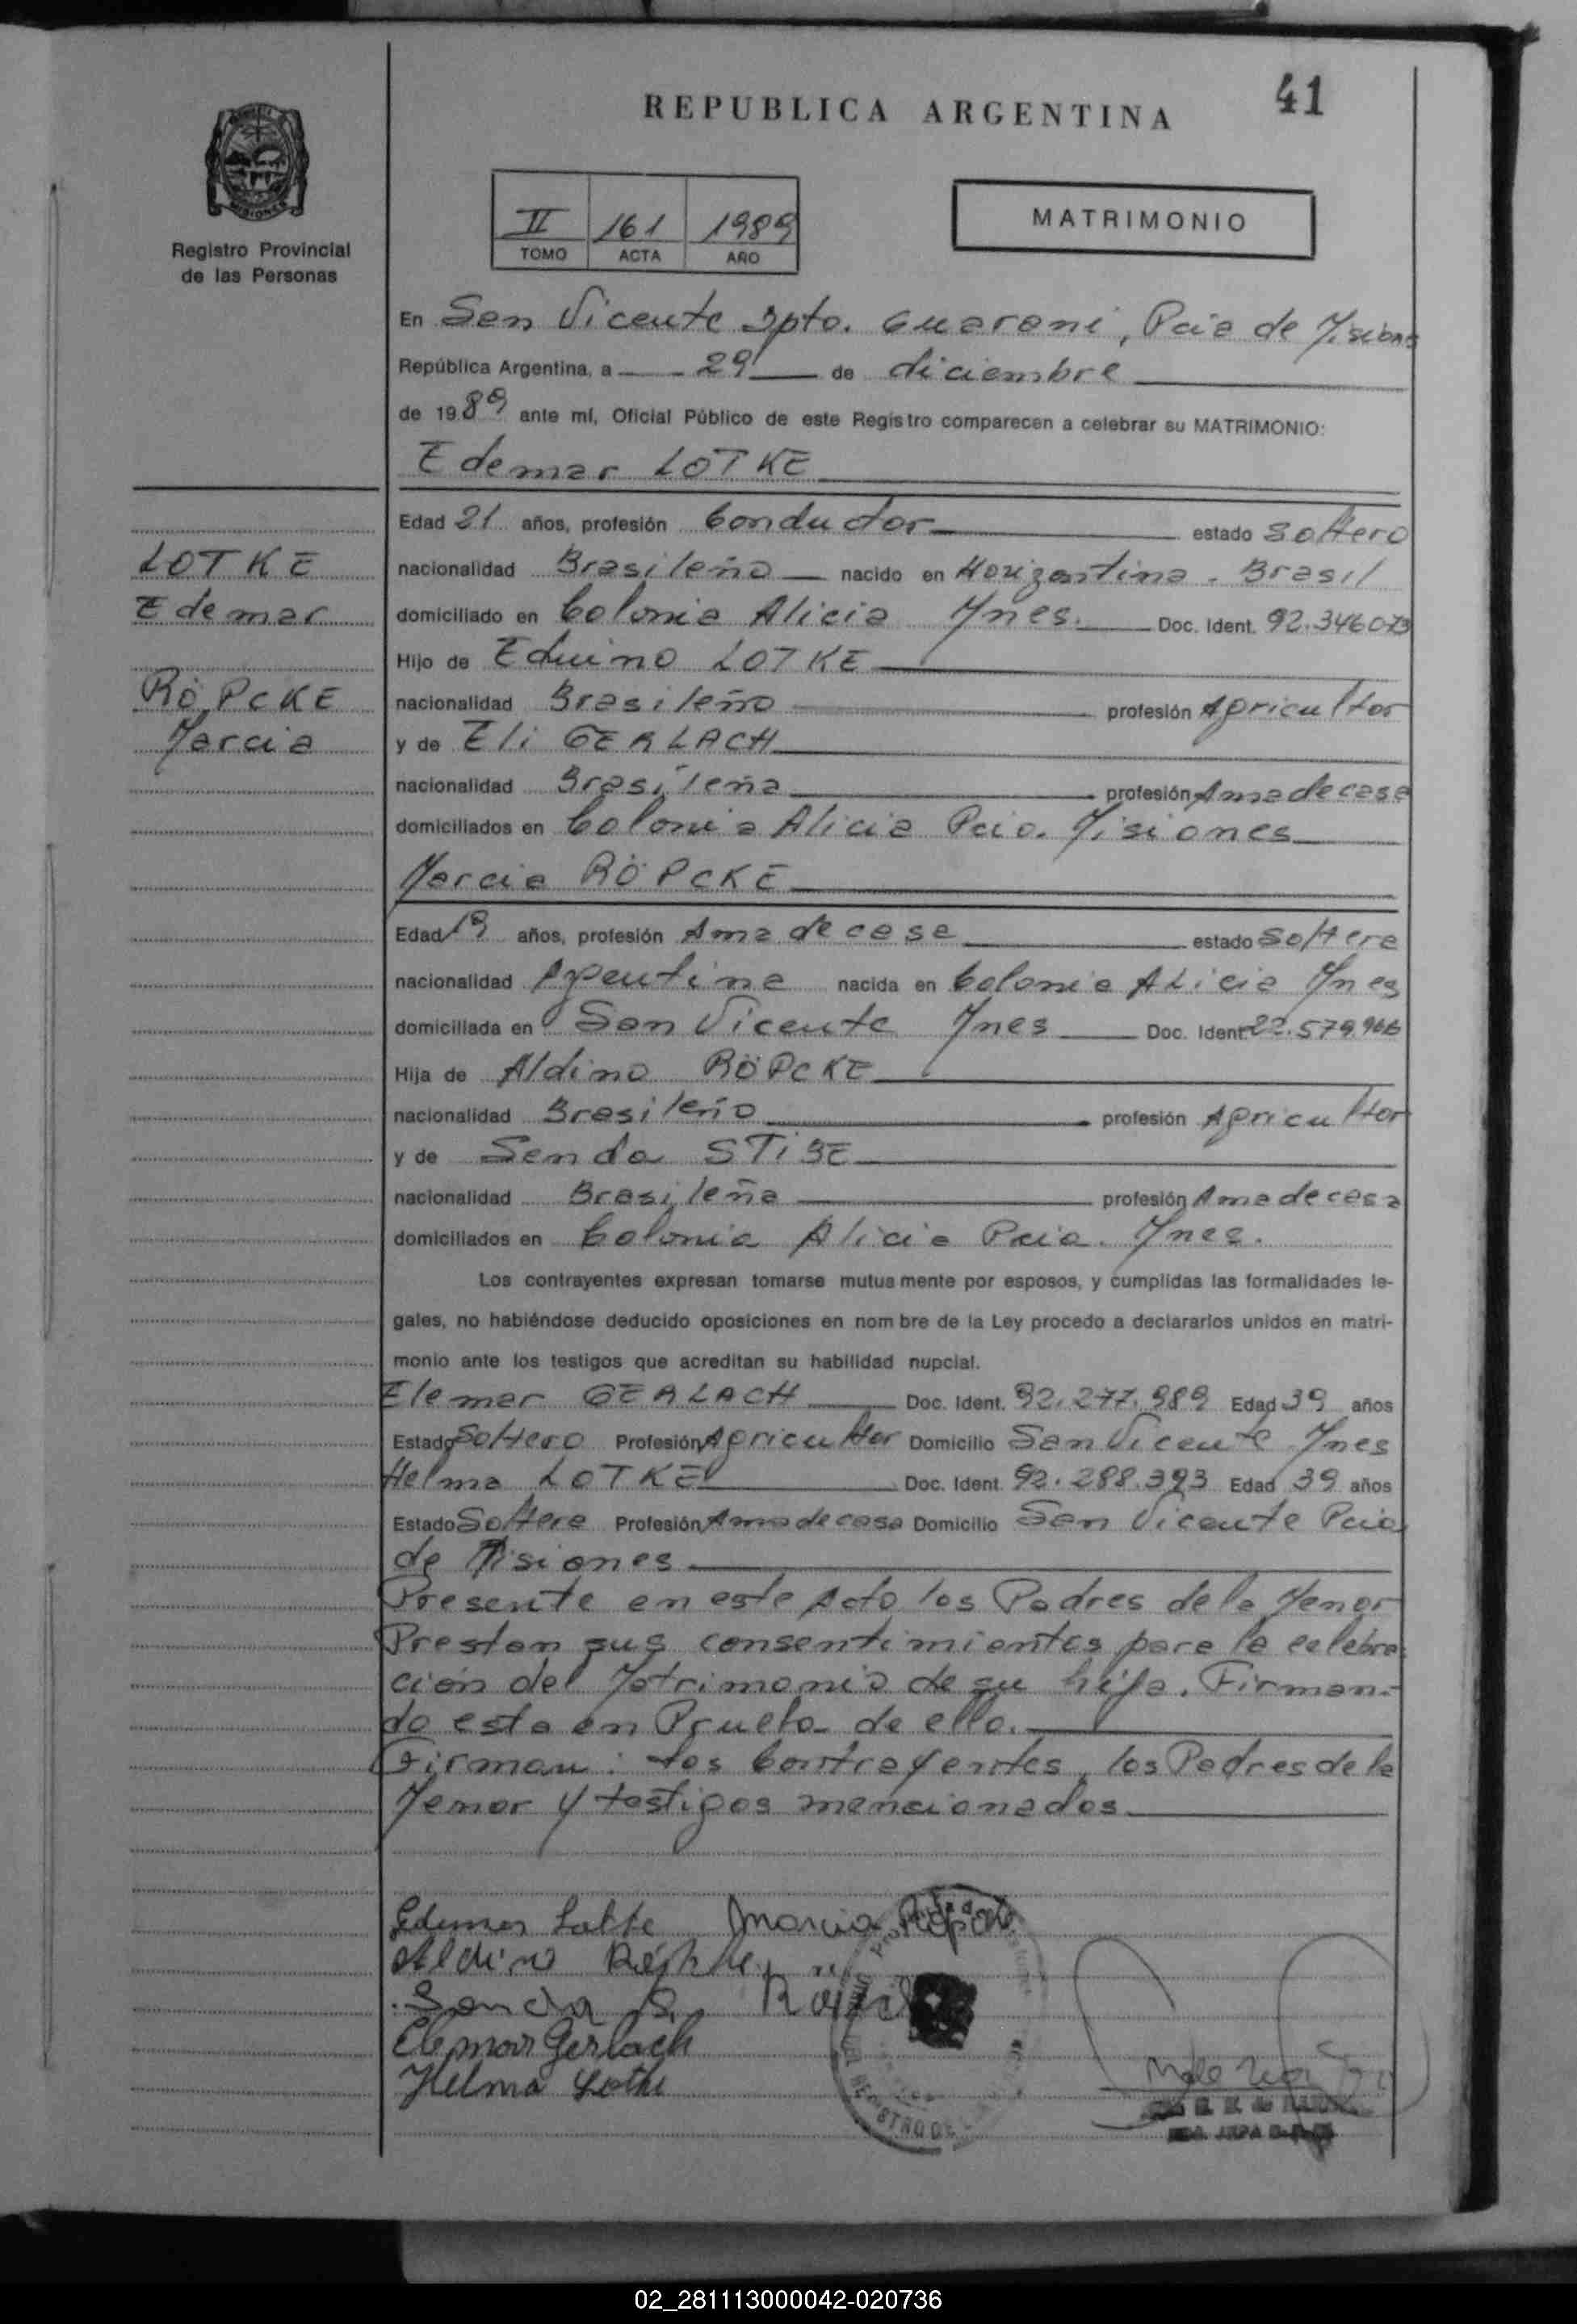 41
REPUBLICA ARGENTINA
MISIONES
Registro Provincial
de las Personas
II 161 1989
TOMO ACTA AÑO
MATRIMONIO
En San Vicente Dpto. Guarani, Pcia de Misiones
República Argentina, a 29 de diciembre
de 1989 ante mí, Oficial Público de este Registro comparecen a celebrar su MATRIMONIO:
Edemar LOTKE
Edad 21 años, profesión Conductor estado Soltero
LOTKE
nacionalidad Brasileño nacido en Horizontina. Brasil
Edemar
domiciliado en Colonia Alicia Mnes. Doc. Ident. 92.346.073
Hijo de Eduino LOTKE
RÖPCKE
nacionalidad Brasileño profesión Agricultor
Marcia
y de Eli GERLACH
nacionalidad Brasileña profesión Ama de casa
domiciliados en Colonia Alicia Pcia. Misiones
Marcia RÖPCKE
Edad 19 años, profesión Ama de casa estado Soltera
nacionalidad Argentina nacida en Colonia Alicia Mnes
domiciliada en San Vicente Mnes Doc. Ident. 22.579.966
Hija de Aldino RÖPCKE
nacionalidad Brasileño profesión Agricultor
y de Senda STIBE
nacionalidad Brasileña profesión Ama de casa
domiciliados en Colonia Alicia Pcia. Mnes.
Los contrayentes expresan tomarse mutuamente por esposos, y cumplidas las formalidades le-
gales, no habiéndose deducido oposiciones en nombre de la Ley procedo a declararlos unidos en matri-
monio ante los testigos que acreditan su habilidad nupcial.
Elemar GERLACH Doc. Ident. 92.277.989 Edad 39 años
Estado Soltero Profesión Agricultor Domicilio San Vicente Mnes
Helma LOTKE Doc. Ident. 92.288.393 Edad 39 años
Estado Soltera Profesión Ama de casa Domicilio San Vicente Pcia
de Misiones
Presente en este Acto los Padres de la Menor
Prestan sus consentimientos para la celebra
ción del Matrimonio de su hija. Firman-
do esta en Prueba de ello.
Firman: Los Contrayentes, los Padres de la
Menor y testigos mencionados.
Edemar Lotke Marcia Röpcke
Aldino Röpcke
Senda S. Röpcke
Elemar Gerlach
Helma Lotke
02_281113000042-020736